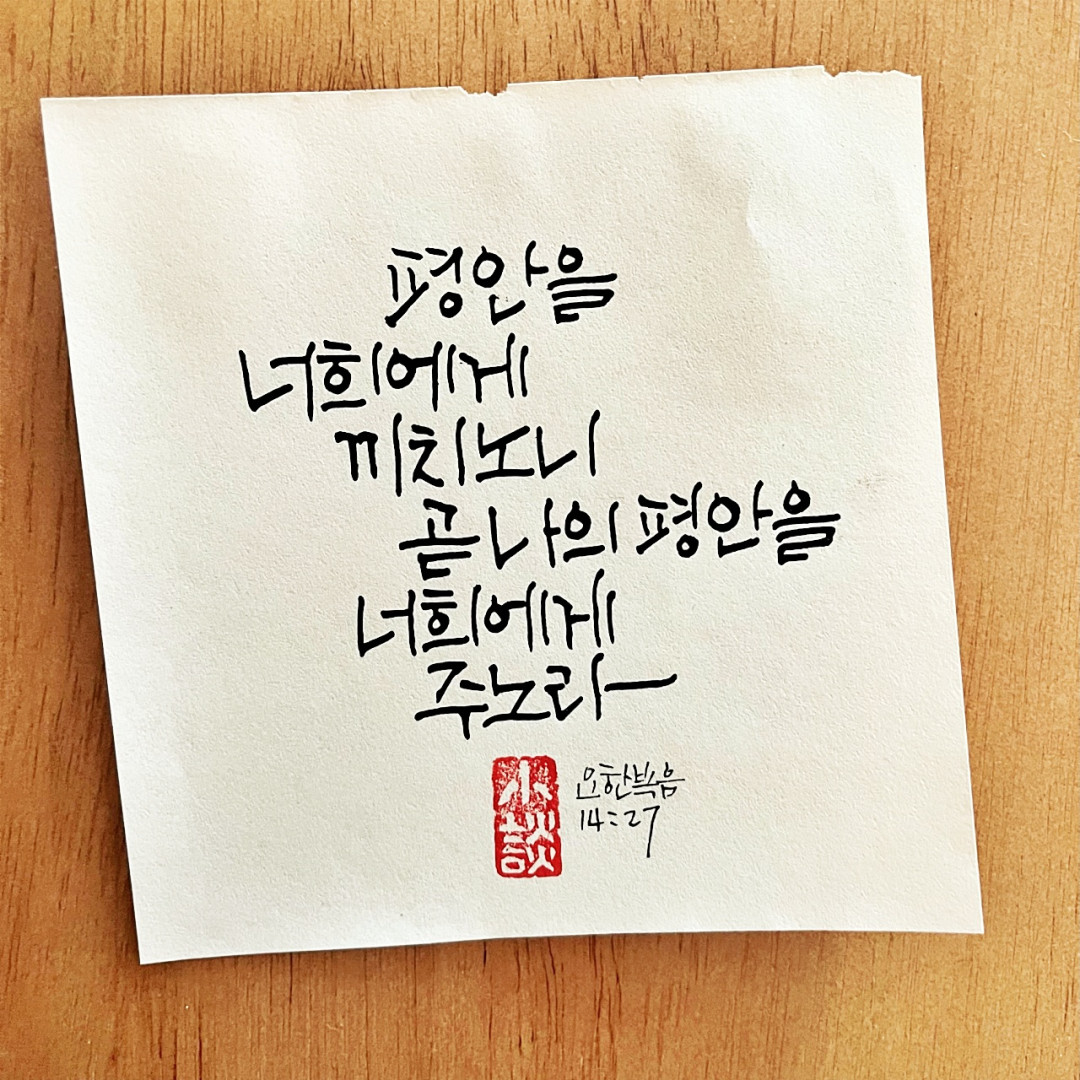 평안을
너희에게
끼치노니
곧 나의 평안을
너희에게
주노라
小談
요한복음
14:27